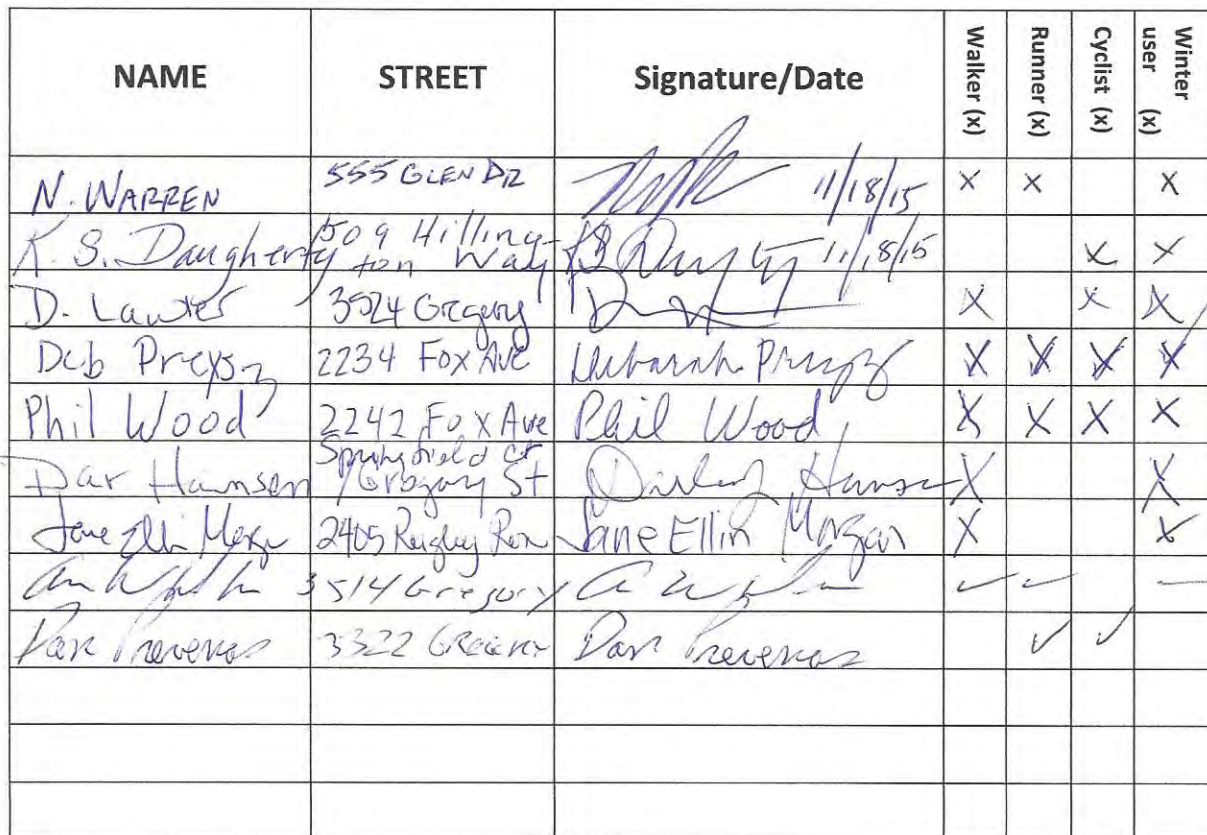 NAME STREET Signature/Date Walker (x) Runner (x) Cyclist (x) Winter user (x)
N. WARREN 555 GLEN DR 11/18/15 X X X
K. S. Daugherty 509 Hillington Way 11/18/15 X X
D. Lawter 3524 Gregory X X X
Deb 2234 Fox Ave X X X X
Phil Wood 2242 Fox Ave Phil Wood X X X X
Dar Hansen Springfield Ct
/Gregory St Hansen X X
Jane Ellin Morgan 2405 Jane Ellin Morgan X X
3514 Gregory ✓ ✓ ✓
3322 Gregory ✓ ✓